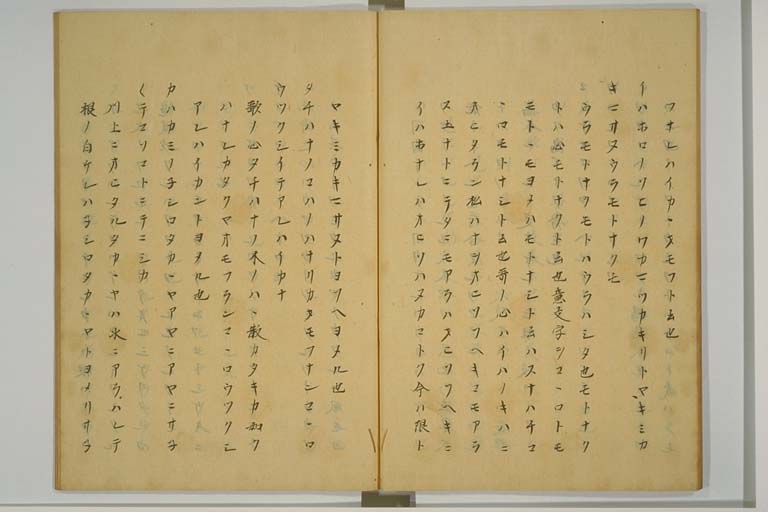 ワサレハイカヽタモフト云也
イハホロノソヒノワカマツカキリトヤキミカ
キマサヌウラモトナクモ
ウラモトナクモトハウラハシタ也モトナク
トハ心モトナクト云也意支字シコヽロトモ
モトヽモヨメハモトナシト云ハスナハチコ
ヽロモトナシト云也哥ノ心ハイハノキハニ
オヒタラン松ハナヲオヒソフヘキコモアラ
ス五ナトニテタニモアラハオヒソフヘキニ
イハホナレハオヒソハヌカコトク今ハ限ト
ヤキミカキマサヌトヨソヘヨメル也
タチハナノコハノハナリカタモフナンコヽロ
ウツクシイテアレハイカナ
歌ノ心タチハナノ木ノハヽ散カタキカ如ク
ハナレカタクマオモフランコヽロウツクシ
アレハイカントヨメル也
カハカミノ子シロタカヽヤアヤニアヤニサ子
クテコソコトニテニシカ
川上ニオヒタルタカヽヤハ水ニアラハレテ
根ノ白ケレハ子シロタカヽヤトヨメリサ子